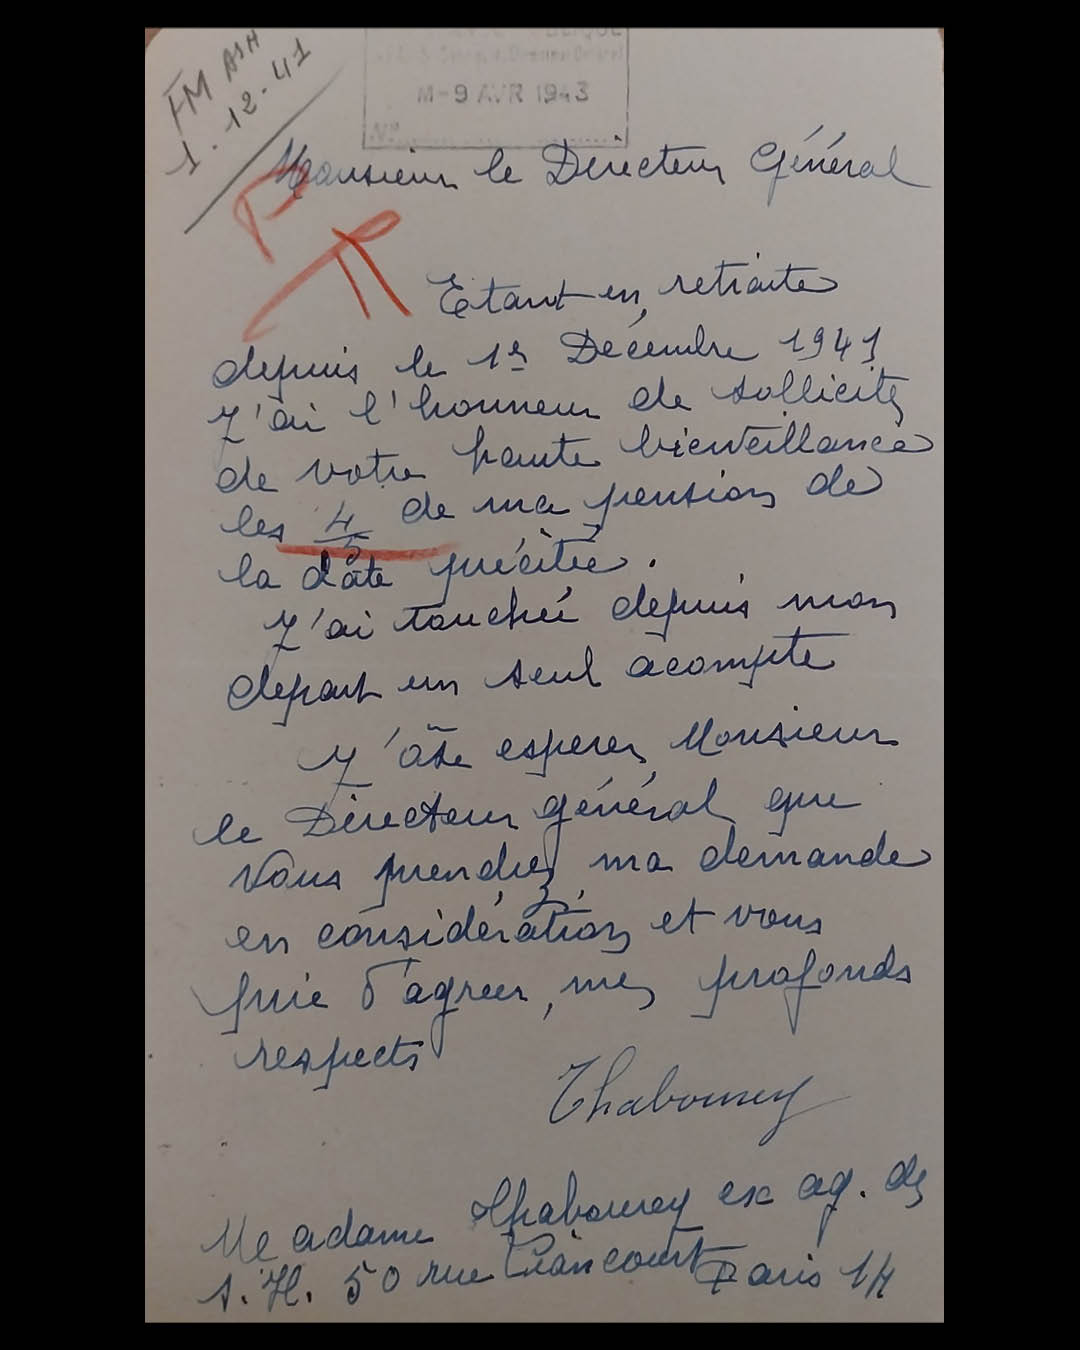 FM ASH
1.12.41
M-9 AVR 1943
N°
Monsieur le Directeur Général
Etant en retraite
depuis le 1er Décembre 1941
J'ai l'honneur de sollicité
de votre haute bienveillance
les 4/5 de ma pension de
la date précitée.
J'ai touchée depuis mon
depart un seul acompte
J'ôse esperer Monsieur
le Directeur général que
vous prendrez ma demande
en considération et vous
prie d'agreer, mes profonds
respects
Thabourey
Madame Thabourey ex ag. des
s.H. 50 rue Liancourt Paris 14